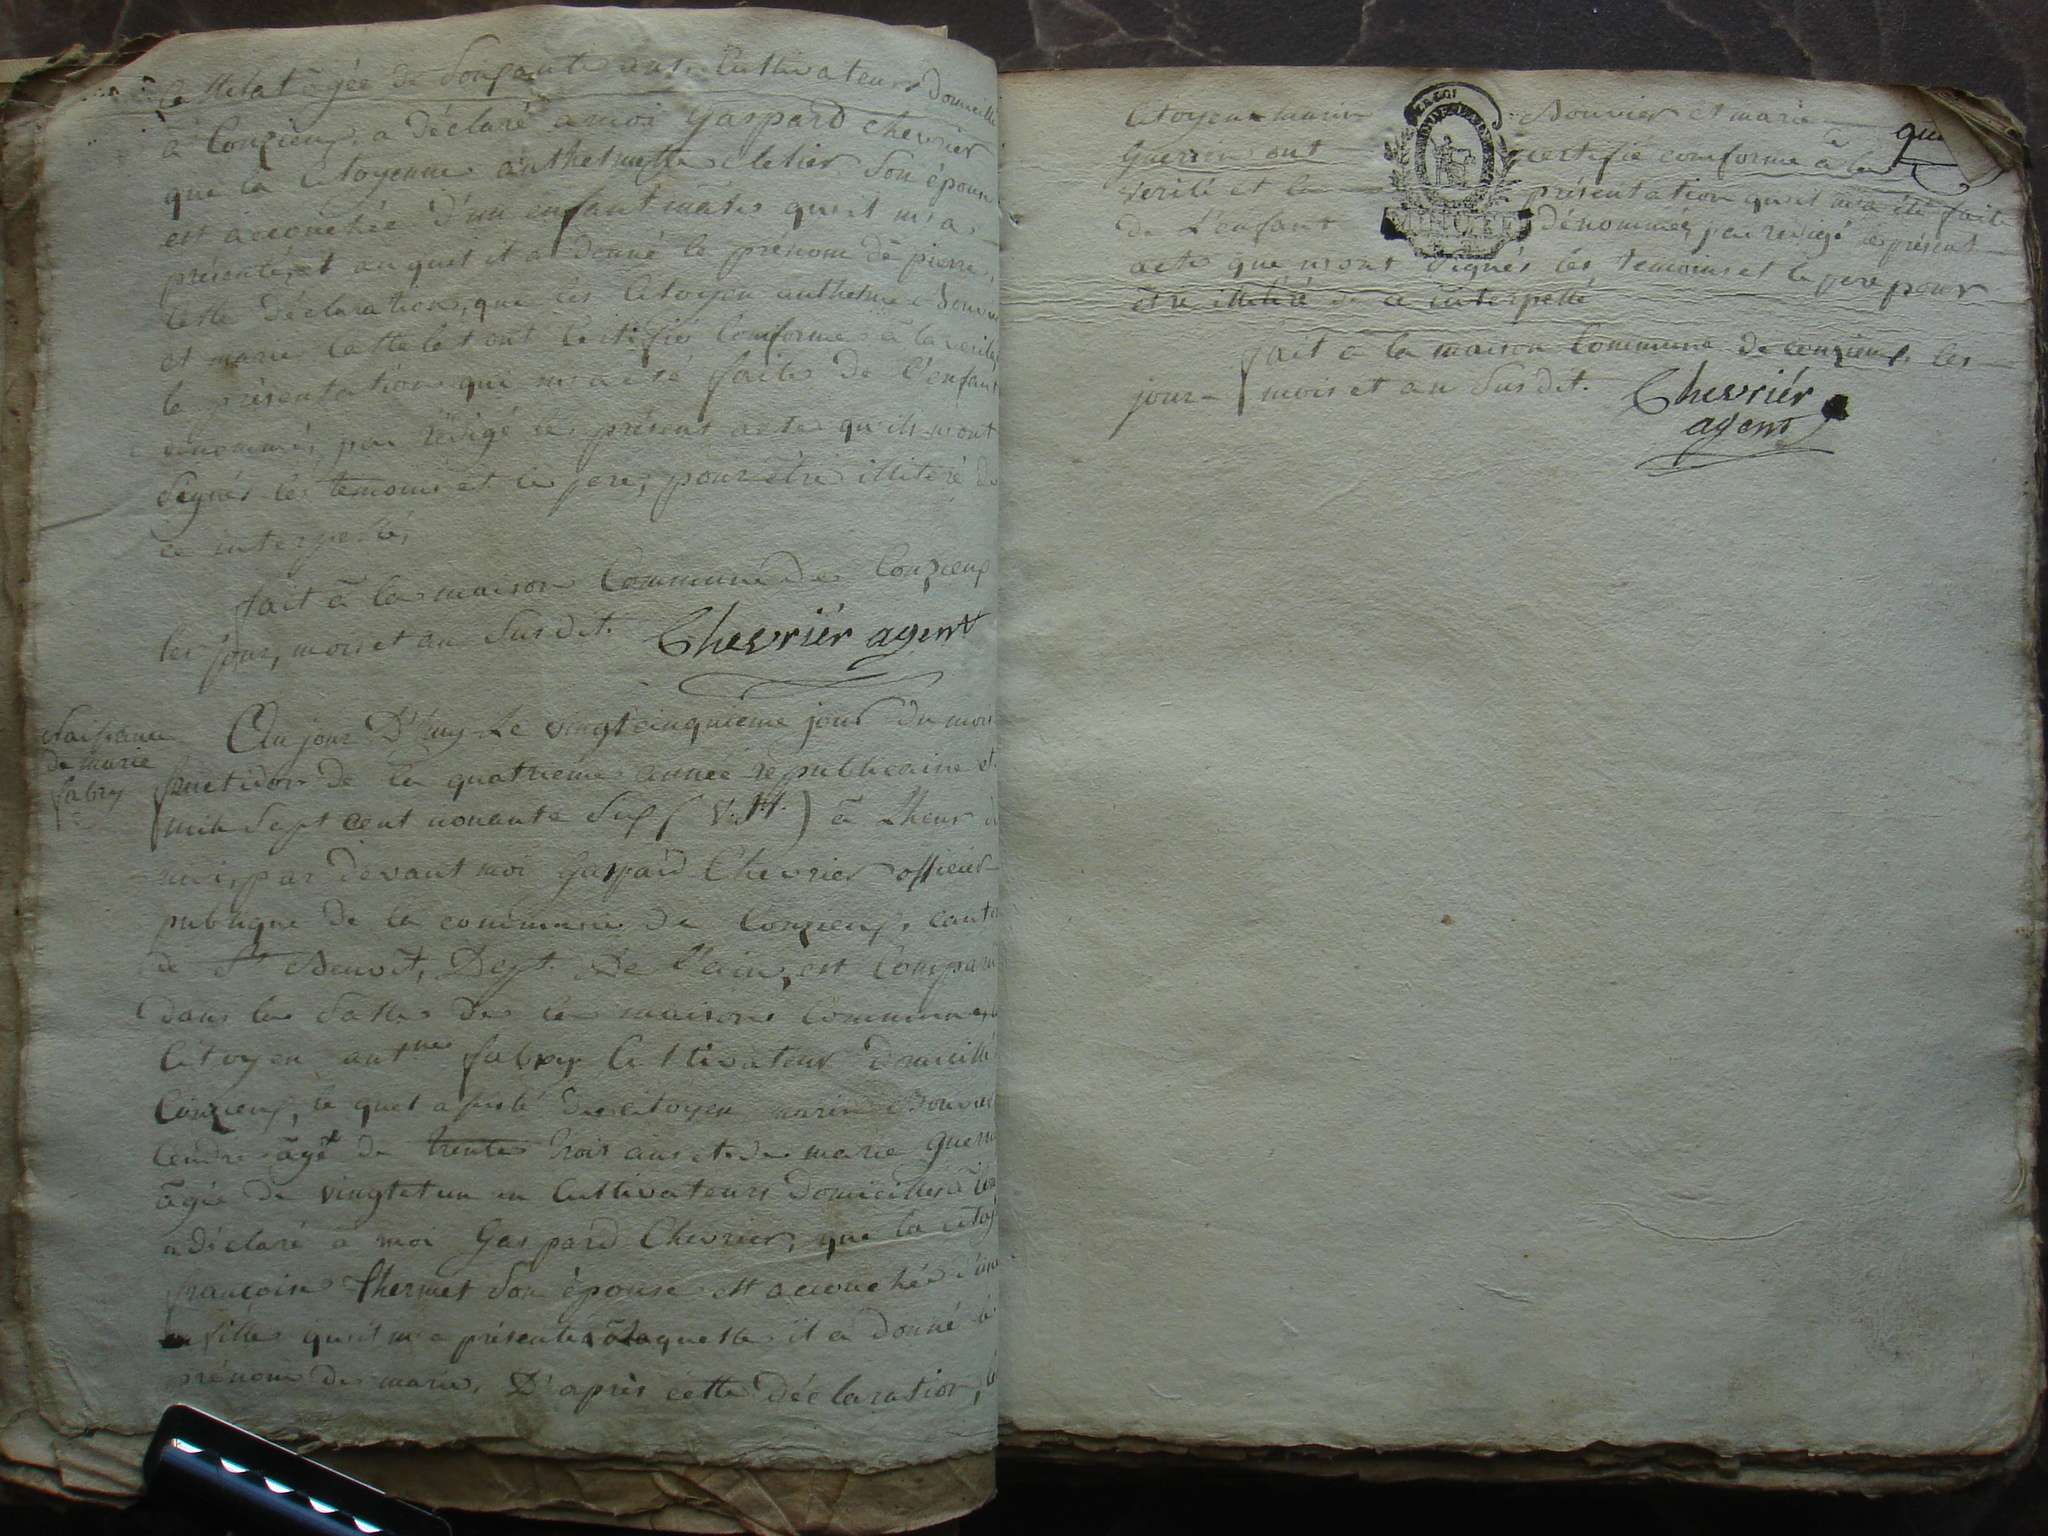 Castelat agée de Soixante ans, Cultivateurs Domicilié
à Conzieux, a déclaré a moi Gaspard Chevrier
que la Citoyenne anthelmette Son épouse
est accouchée d'un enfant male, qu'il m'a
présenté, et auquel il a donné le prenom de pierre,
cette déclaration, que les Citoyen anthelme Bouvie
et marie Castelet ont Certifié Conforme à la verité
la présentation qui m'a été faite de l'enfant
dénommé, j'ai rédigé le présent acte qu'ils n'ont
Signés les temoins et le pere, pour etre illiteré de
ce interpellé,
fait à la maison Commune de Conzieux
les jour, mois et an Susdit. Chevriér agent
Naissance
de marie
fabry
Au jour D'huy Le vingt cinquieme jour du mois
fructidor de la quatrieme année republicaine et
mile Sept cent nonante Six (V. St.) à Lheur de
midi, par devant moi Gaspard Chevrier officier
publique de la commune de Conzieux, canton
de St Benoît, Dept. De l'ain, est Comparu
dans la Salle de la maison Commune, le
Citoyen antme fabry Cultivateur domicillié
Conzieux, le quel assisté du citoyen marin Bouvier
agé de trente trois ans et de marie Guerin
âgée de vingt et un an Cultivateurs Domicilliés à
a déclaré a moi Gaspard Chevrier, que la citoy
françoise thermet Son épouse est accouchée d'une
fille qu'il m'a présentée à laquelle il a donné le
prénom de marie. D'après cette déclaration, les
Citoyens marin Bouvier et marie
Guerin ont certifié conforme à la
verité et la présentation qu'il m'a été fait
de L'enfant dénommé, j'ai redigé le présent
acte que n'ont Signés les temoins et le pere pour
etre illitéré de ce interpellé
fait à la maison Commune de conzieux les
jour mois et an Susdit. Chevriér
agent